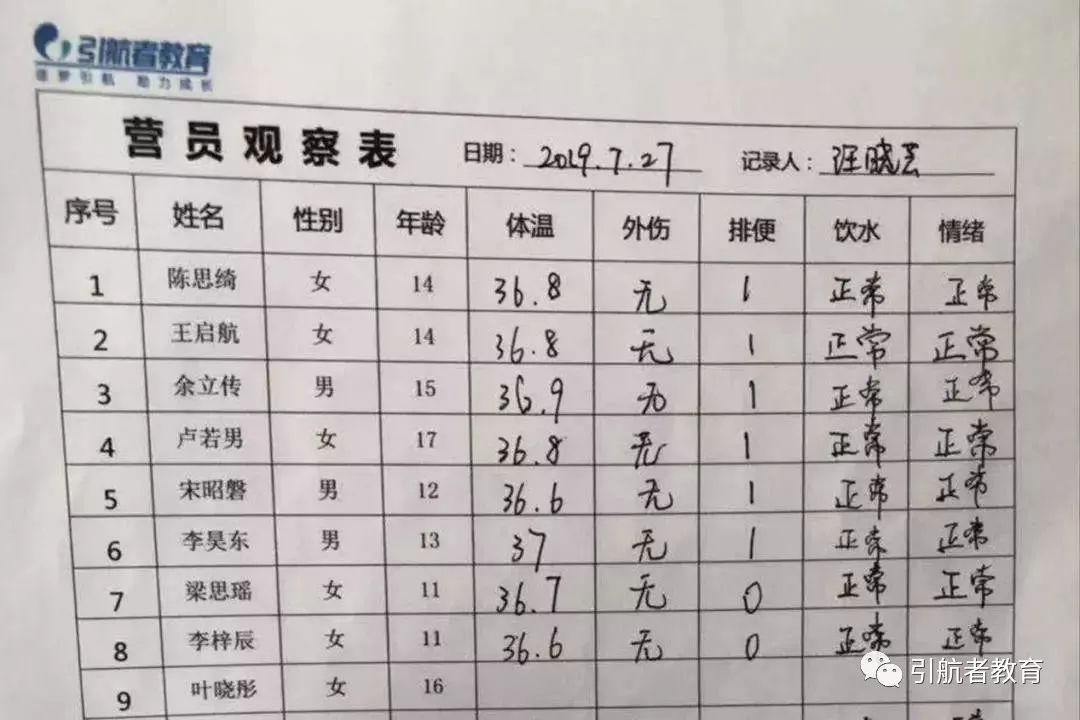 引航者教育
逐梦引航 助力成长
营员观察表 日期: 2019.7.27 记录人: 汪晓芸
序号 姓名 性别 年龄 体温 外伤 排便 饮水 情绪
1 陈思绮 女 14 36.8 无 1 正常 正常
2 王启航 女 14 36.8 无 1 正常 正常
3 余立传 男 15 36.9 无 1 正常 正常
4 卢若男 女 17 36.8 无 1 正常 正常
5 宋昭磐 男 12 36.6 无 1 正常 正常
6 李昊东 男 13 37 无 1 正常 正常
7 梁思瑶 女 11 36.7 无 0 正常 正常
8 李梓辰 女 11 36.6 无 0 正常 正常
9 叶晓彤 女 16
引航者教育